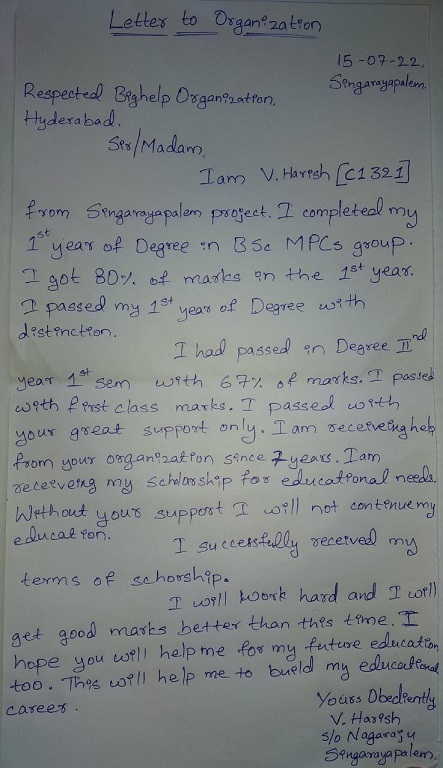 Letter to Organization
15-07-22,
Singarayapalem
Respected Bighelp Organization,
Hyderabad.
Sir/Madam,
Iam V. Harish [C1321]
from Singarayapalem project. I completed my
1st year of Degree in BSc MPCs group.
I got 80% of marks in the 1st year.
I passed my 1st year of Degree with
distinction.
I had passed in Degree IInd
year 1st sem with 67% of marks. I passed
with first class marks. I passed with
your great support only. I am receiveing help
from your organization since 7 years. Iam
receiveing my scholorship for educational needs.
Without your support I will not continue my
education.
I successfully received my
terms of schorship.
I will work hard and I will
get good marks better than this time. I
hope you will help me for my future education
too. This will help me to build my educational
career.
Yours Obediently
V. Harish
S/o Nagaraju
Singarayapalem.